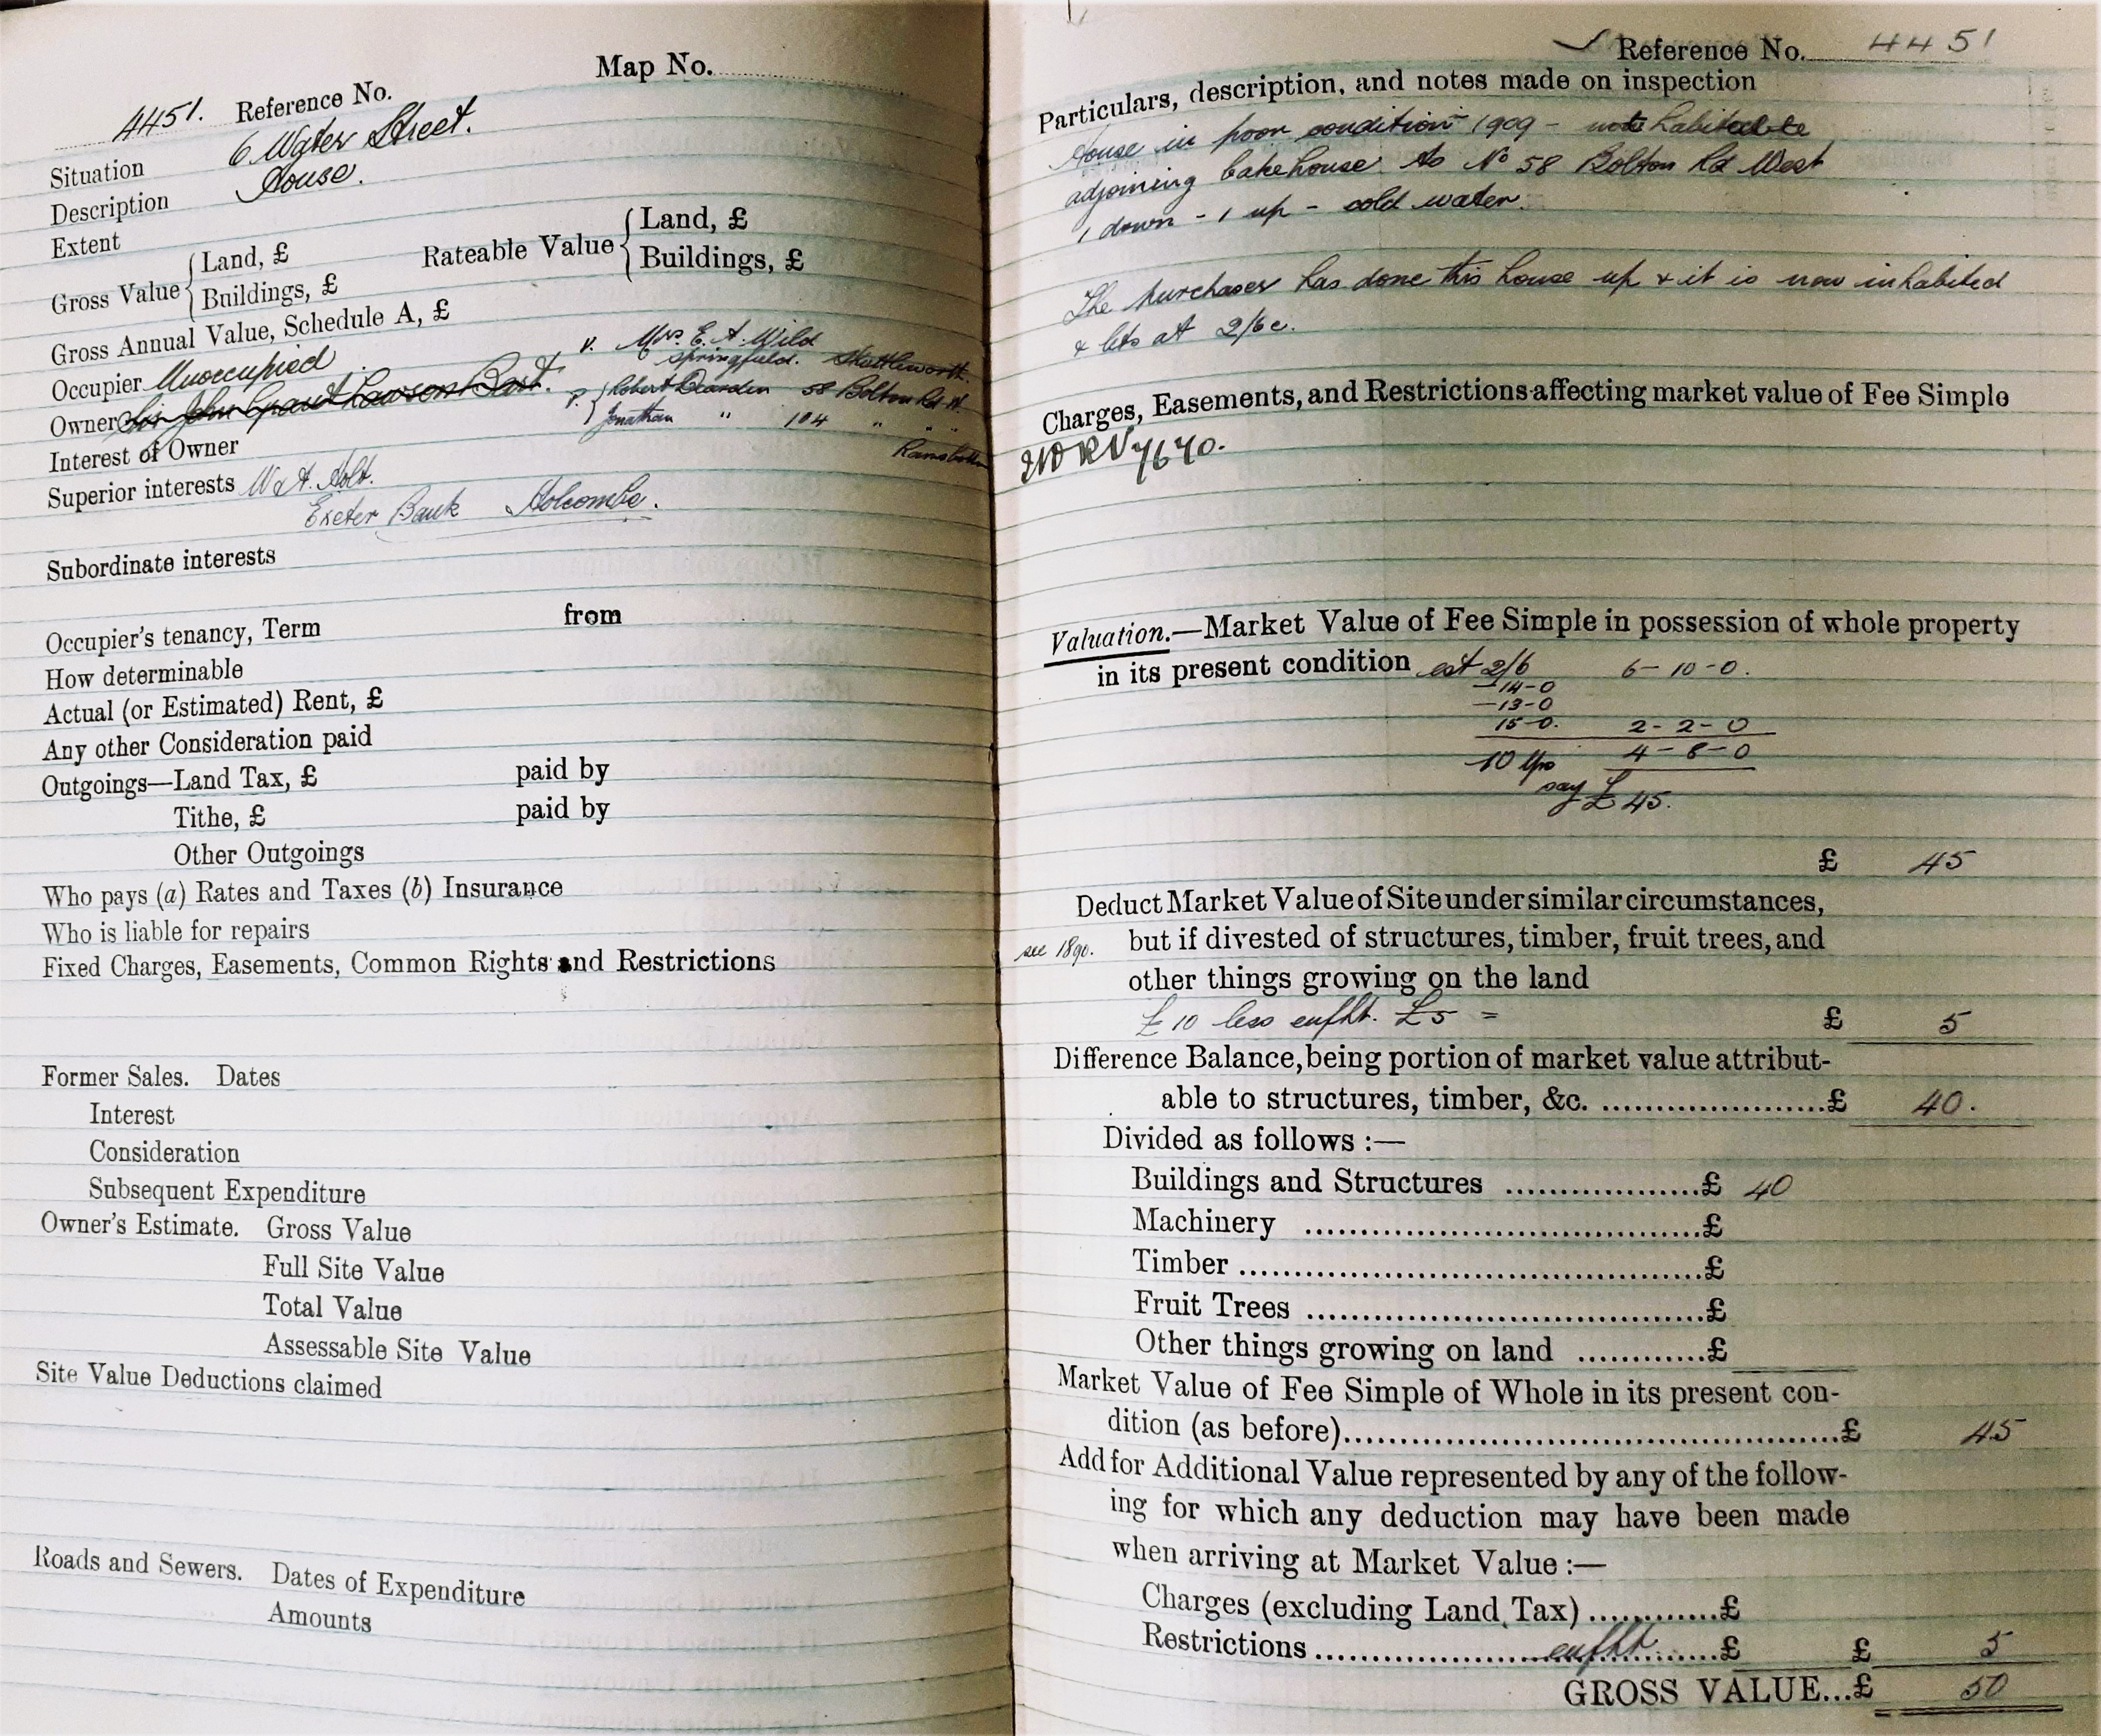 Map No.
4451. Reference No.
Situation 6 Water Street.
Description House.
Extent
Gross Value { Land, £ Rateable Value { Land, £
Buildings, £ Buildings, £
Gross Annual Value, Schedule A, £
Occupier Unoccupied
V. Mrs. E. A. Wild
Springfield. Shuttleworth.
Owner Sir John Grant Lawson Bart.
P. { Robert Dearden 58 Bolton Rd W.
Jonathan " 104 " " "
Ramsbottom
Interest of Owner
Superior interests W A. Holt.
Exeter Bank Holcombe.
Subordinate interests
Occupier's tenancy, Term from
How determinable
Actual (or Estimated) Rent, £
Any other Consideration paid
Outgoings—Land Tax, £ paid by
Tithe, £ paid by
Other Outgoings
Who pays (a) Rates and Taxes (b) Insurance
Who is liable for repairs
Fixed Charges, Easements, Common Rights and Restrictions
Former Sales. Dates
Interest
Consideration
Subsequent Expenditure
Owner's Estimate. Gross Value
Full Site Value
Total Value
Assessable Site Value
Site Value Deductions claimed
Roads and Sewers. Dates of Expenditure
Amounts
Reference No. 4451
Particulars, description, and notes made on inspection
House in poor condition 1909 - not habitable
adjoining bakehouse to No 58 Bolton Rd West
1 down - 1 up - cold water.
The purchaser has done this house up & it is now inhabited
& lets at 2/6 c.
Charges, Easements, and Restrictions affecting market value of Fee Simple
7670.
Valuation.—Market Value of Fee Simple in possession of whole property
in its present condition est 2/6 6-10-0.
-14-0
-13-0
15-0. 2-2-0
10 Yrs 4-8-0
say £45.
£ 45
Deduct Market Value of Site under similar circumstances,
see 1890. but if divested of structures, timber, fruit trees, and
other things growing on the land
£10 less enfht. £5 = £ 5
Difference Balance, being portion of market value attribut-
able to structures, timber, &c. ......................£ 40.
Divided as follows :—
Buildings and Structures ...................£ 40
Machinery ...................................£
Timber ..........................................£
Fruit Trees ...................................£
Other things growing on land ............£
Market Value of Fee Simple of Whole in its present con-
dition (as before)..................................................£ 45
Add for Additional Value represented by any of the follow-
ing for which any deduction may have been made
when arriving at Market Value :—
Charges (excluding Land Tax) ............£
Restrictions ........................enfht..........£ £ 5
GROSS VALUE...£ 50